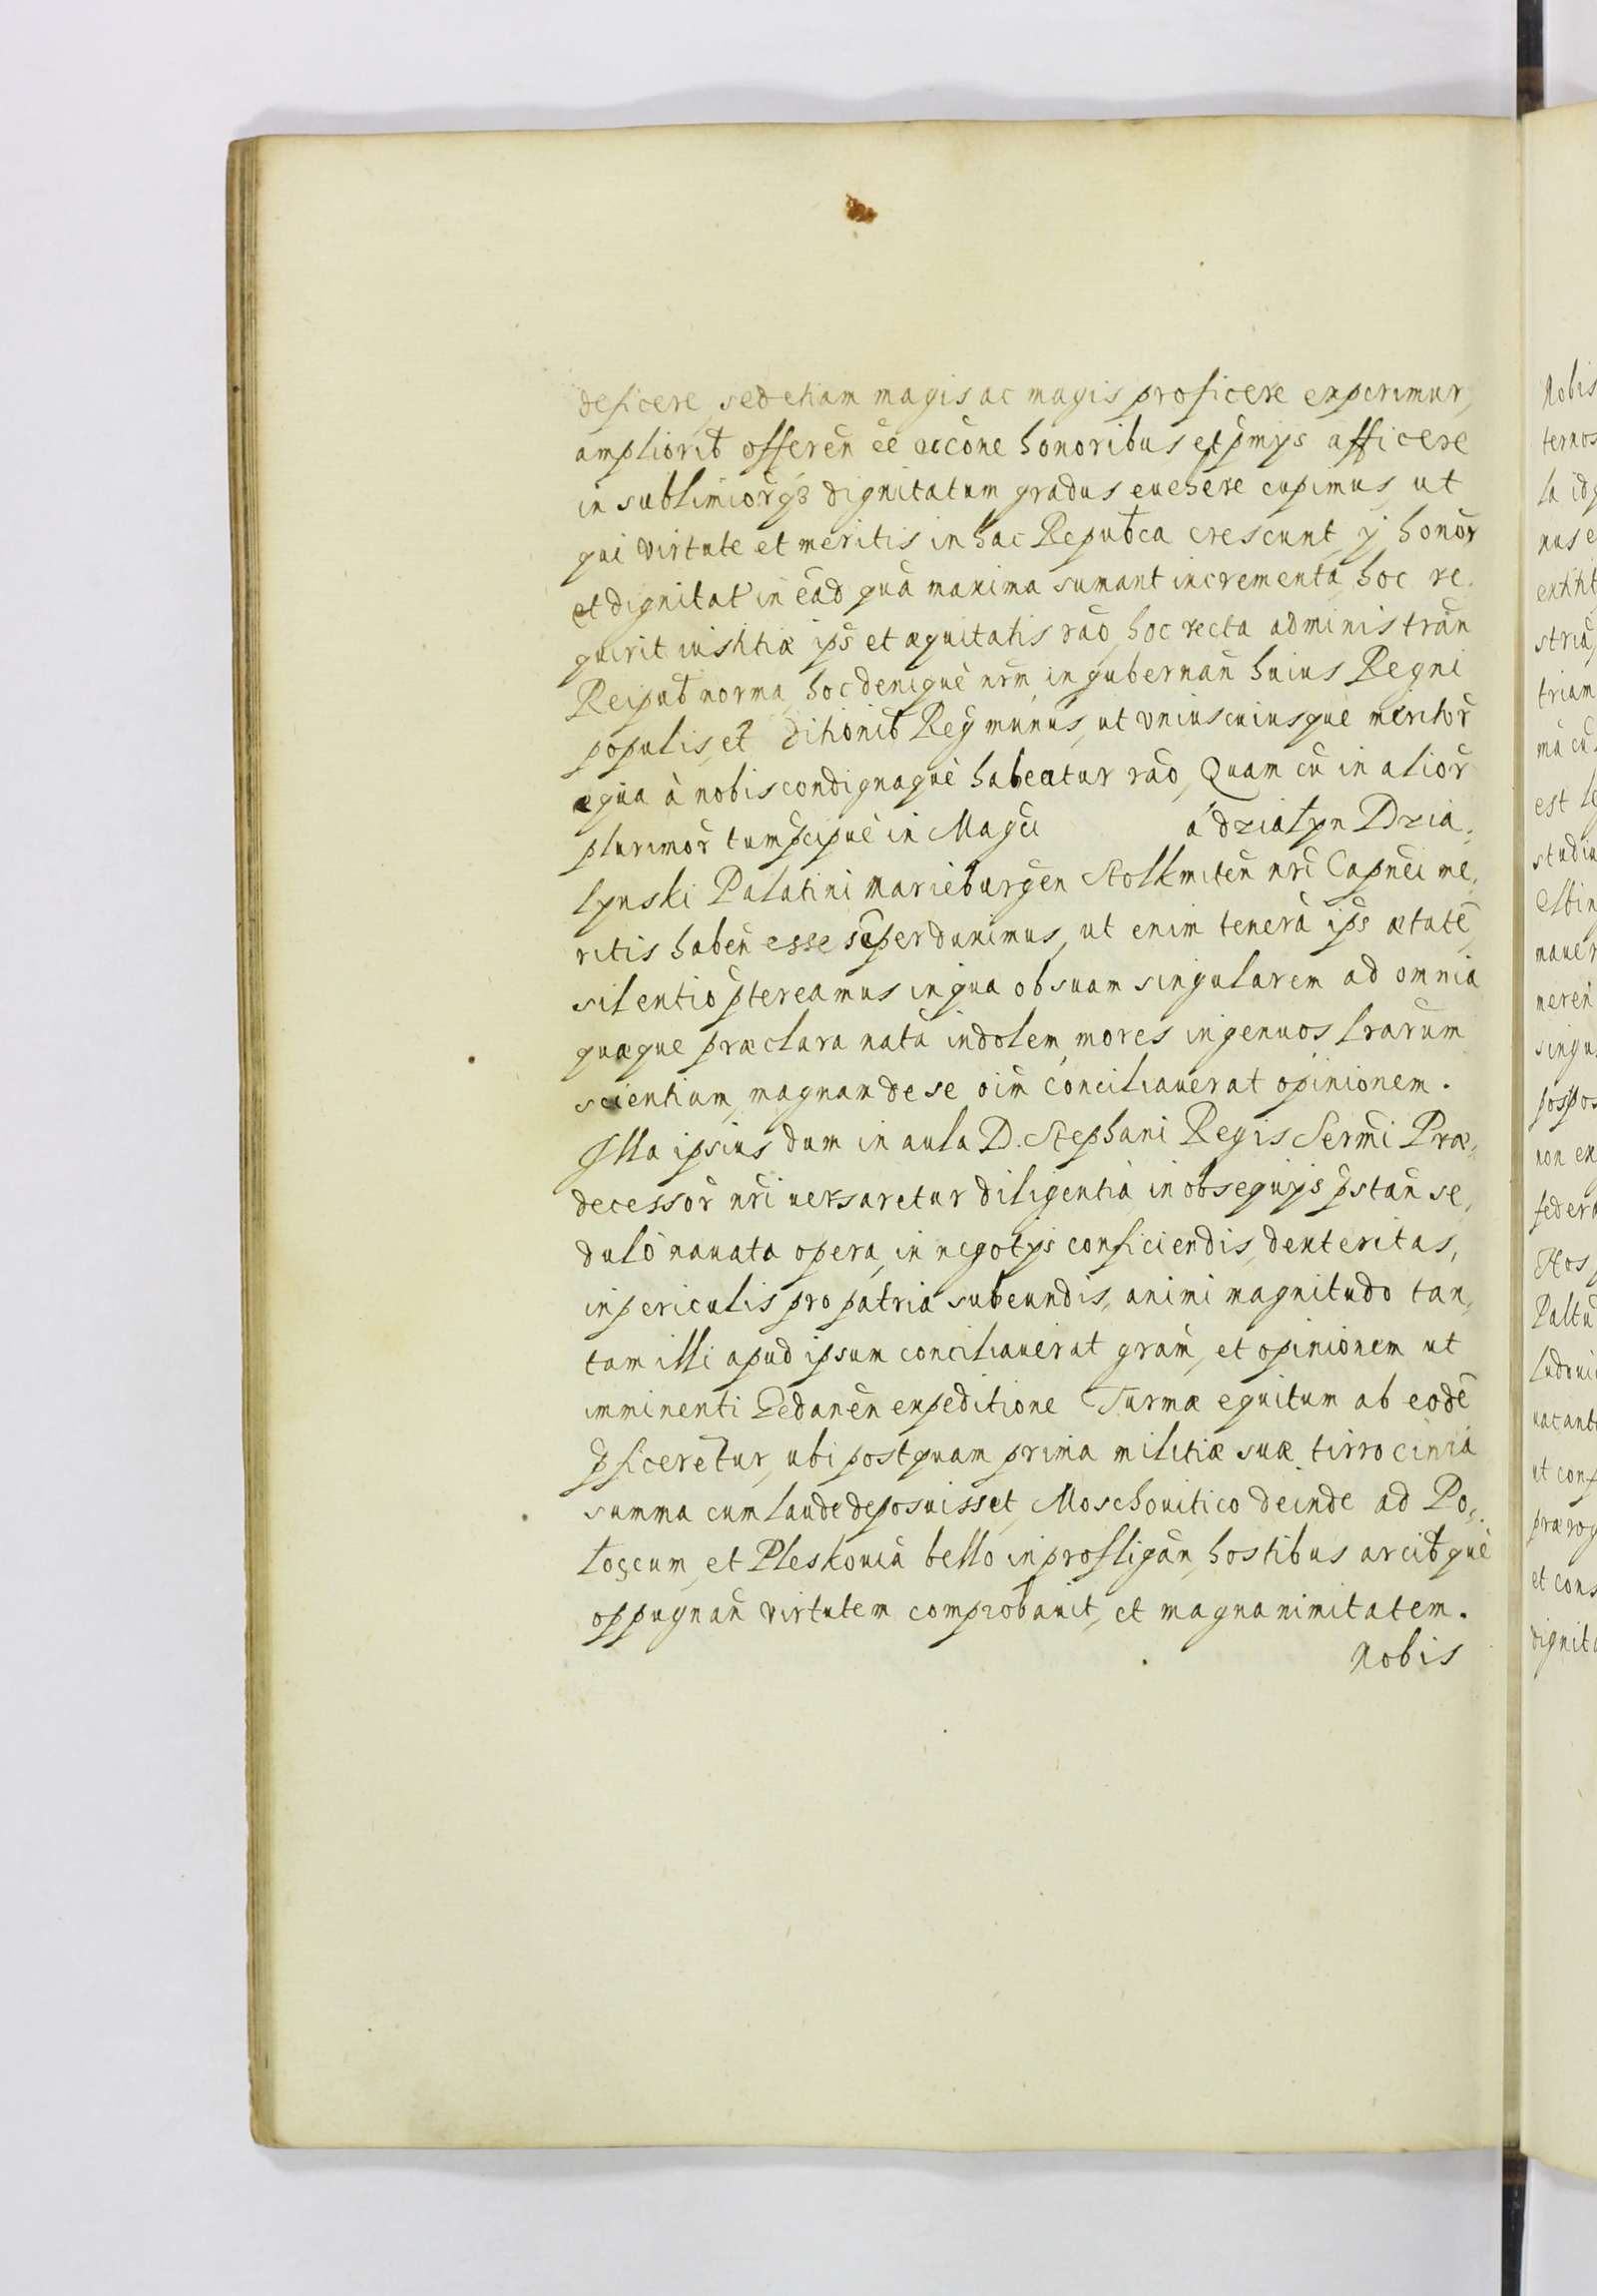 deficere, sed etiam magis ac magis proficere experimur,
ampliorib offeren̄ ēē accōne honoribus et p̄mijs afficere
in sublimiorq́ʒ dignitatum gradus euehere cupimus, ut
qui virtute et meritis in hac Repub̄ca crescunt, ij honor̄
et dignitat in ēād quā maxima sumant incrementa, hoc re,
quirit iustitiæ ip̄s et æquitatis rāō, hoc recta administrān
Reipub̄ norma, hoc deniquè nr̄m in gubernān huius Regni
populis, et ditionib̄ Reḡ munus, ut vniuscuiusque meritor̄
æqua à nobis condignaquè habeatur rāō, Quam cū in alior̄
plurimor̄ tum p̄cipuè in Magc̄i á dziatyn Dzia,
lynski Palatini Marieburgēn Stolkmitēn nr̄i Capnēi me,
ritis habēn esse sēper duximus, ut enim tenerā ip̄s ætatē,
silentiò p̄tereamus in qua ob suam singularem ad omnia
quæque præclara natā indolem, mores ingenuos, lr̄arūm
scientiam, magnam de se oīm conciliauerat opinionem.
Illa ipsius dum in aula D. Stephani Regis Serm̄i Præ,
decessor̄ nr̄i uersaretur diligentià in obsequijs p̄stān se,
dulò nauata opera, in negotijs conficiendis, dexteritas,
in periculis pro patria subeundis, animi magnitudo tan,
tam illi apud ipsum conciliauerat grām, et opinionem ut
imminenti Gedanēn expeditione Turmæ equitum ab eodē
p̄ficeretur, ubi postquam prima militiæ suæ tirrocinia
summa cum laude deposuisset, Moschouitico deinde ad Po,
loccum, et Pleskouiā bello in profligān, hostibus arcib̄què
oppugnān virtutem comprobauit, et magnanimitatem.
Nobis